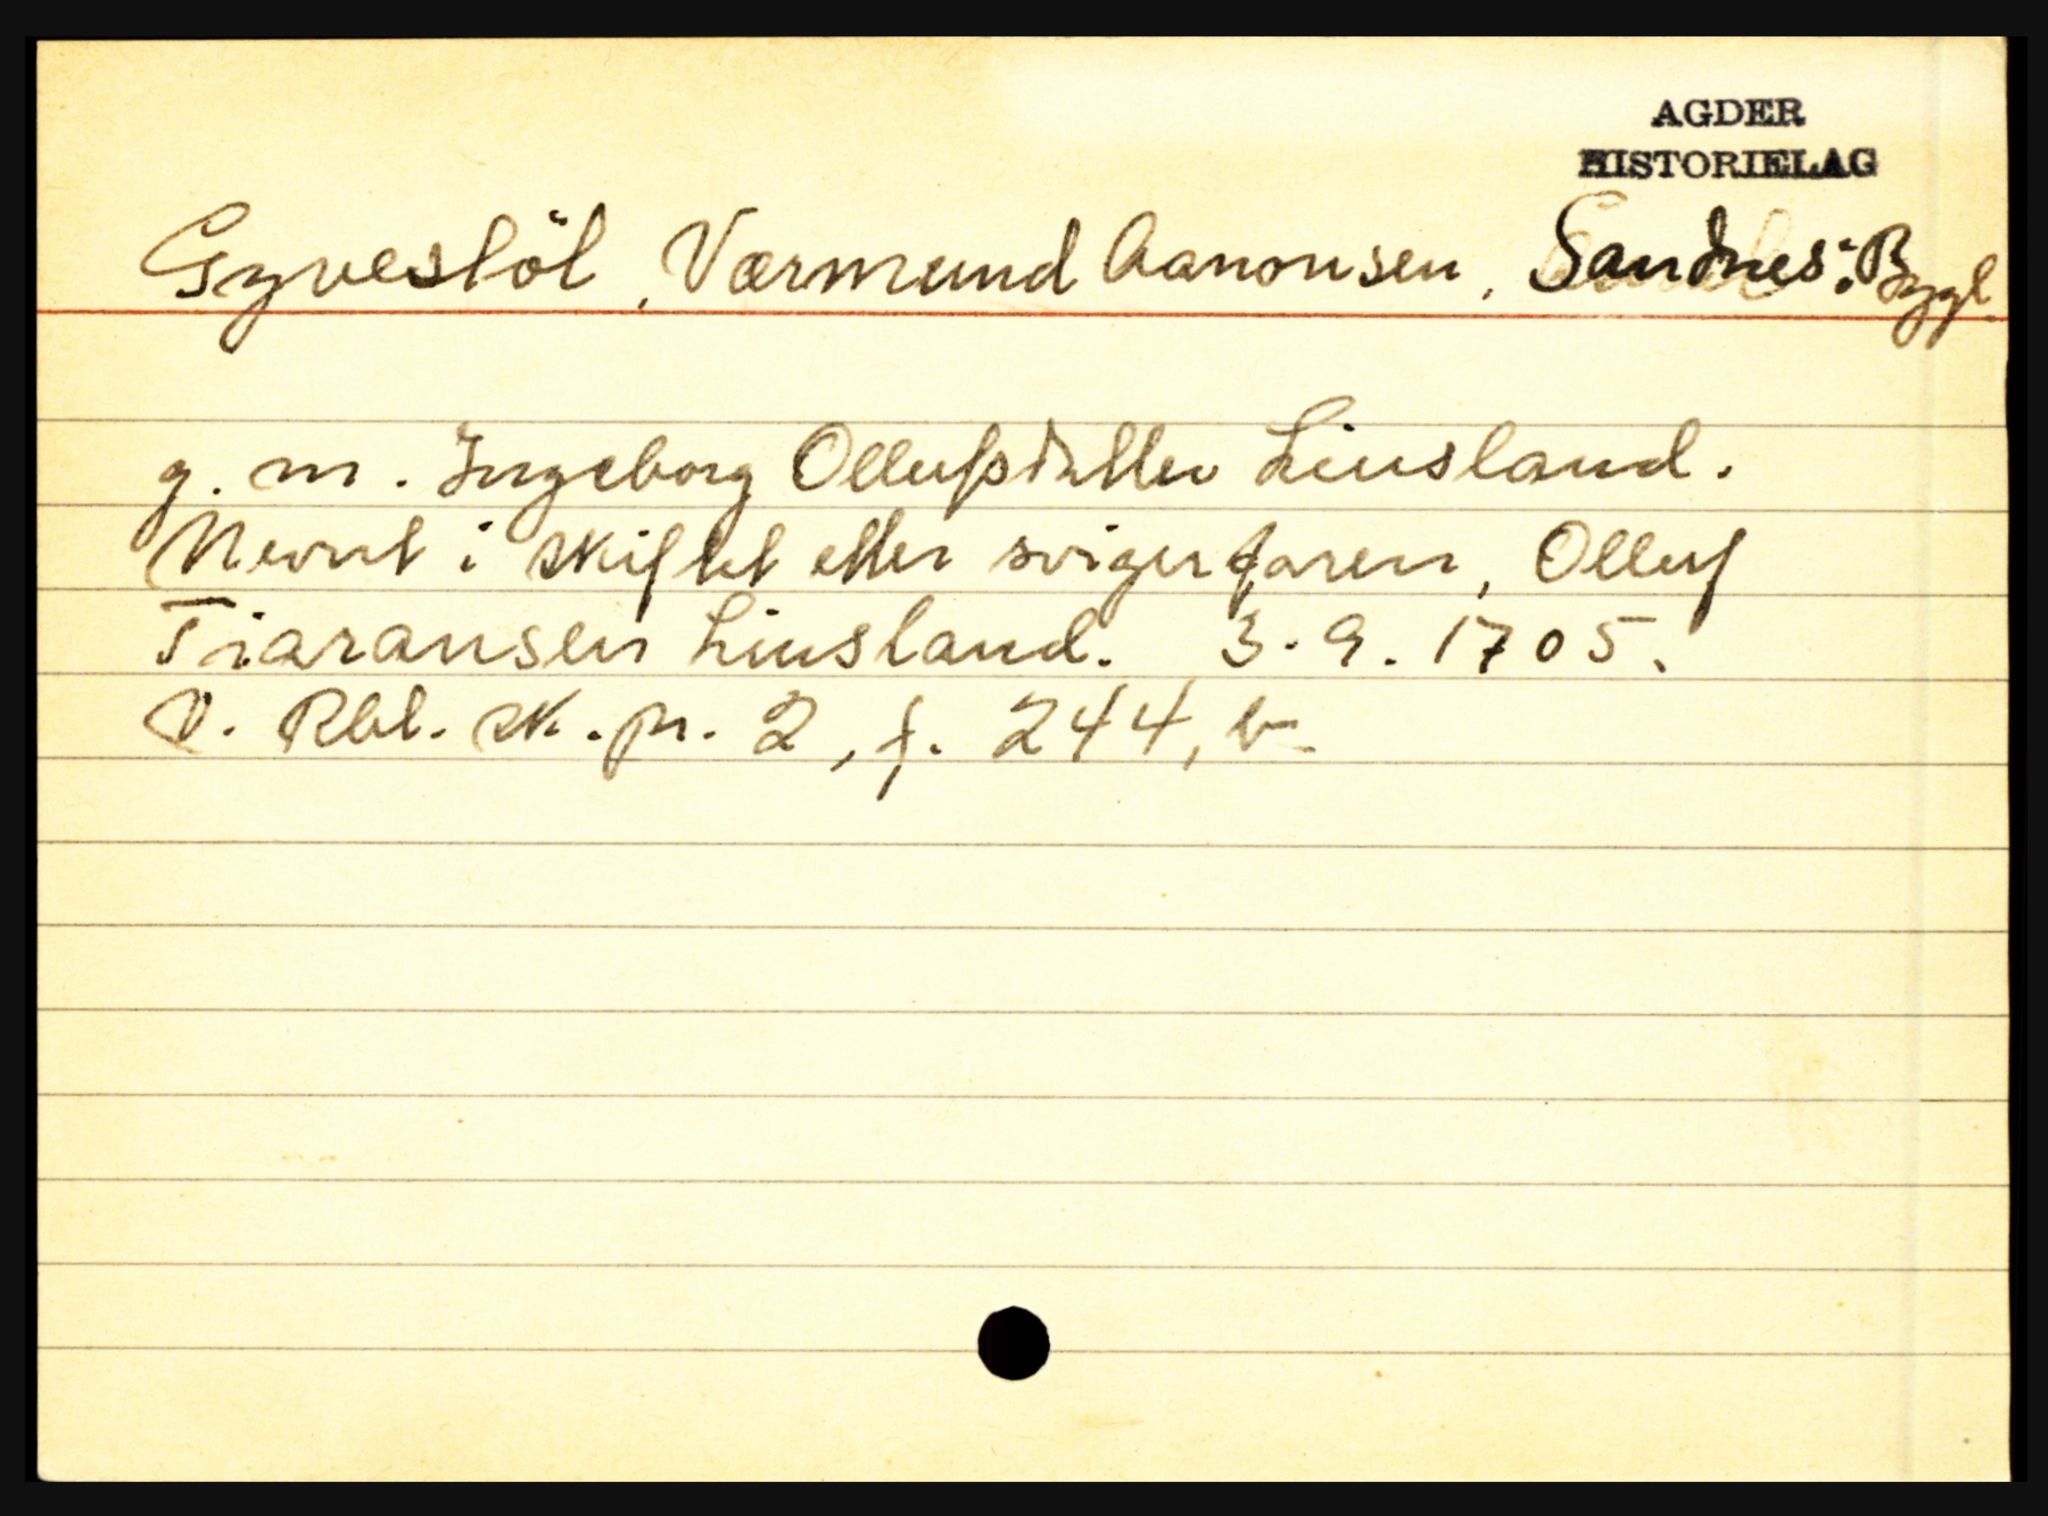 AGDER
HISTORIELAG
Gyvestöl, Værmund Aanonsen, Sandnes: Bygl.
g. m. Ingeborg Ollufsdatter Liusland.
Nevnt i skiftet etter svigerfaren, Olluf
Tiaransen Liusland. 3. 9. 1705.
V. Rbl. sk. pr. 2, f. 244, b.